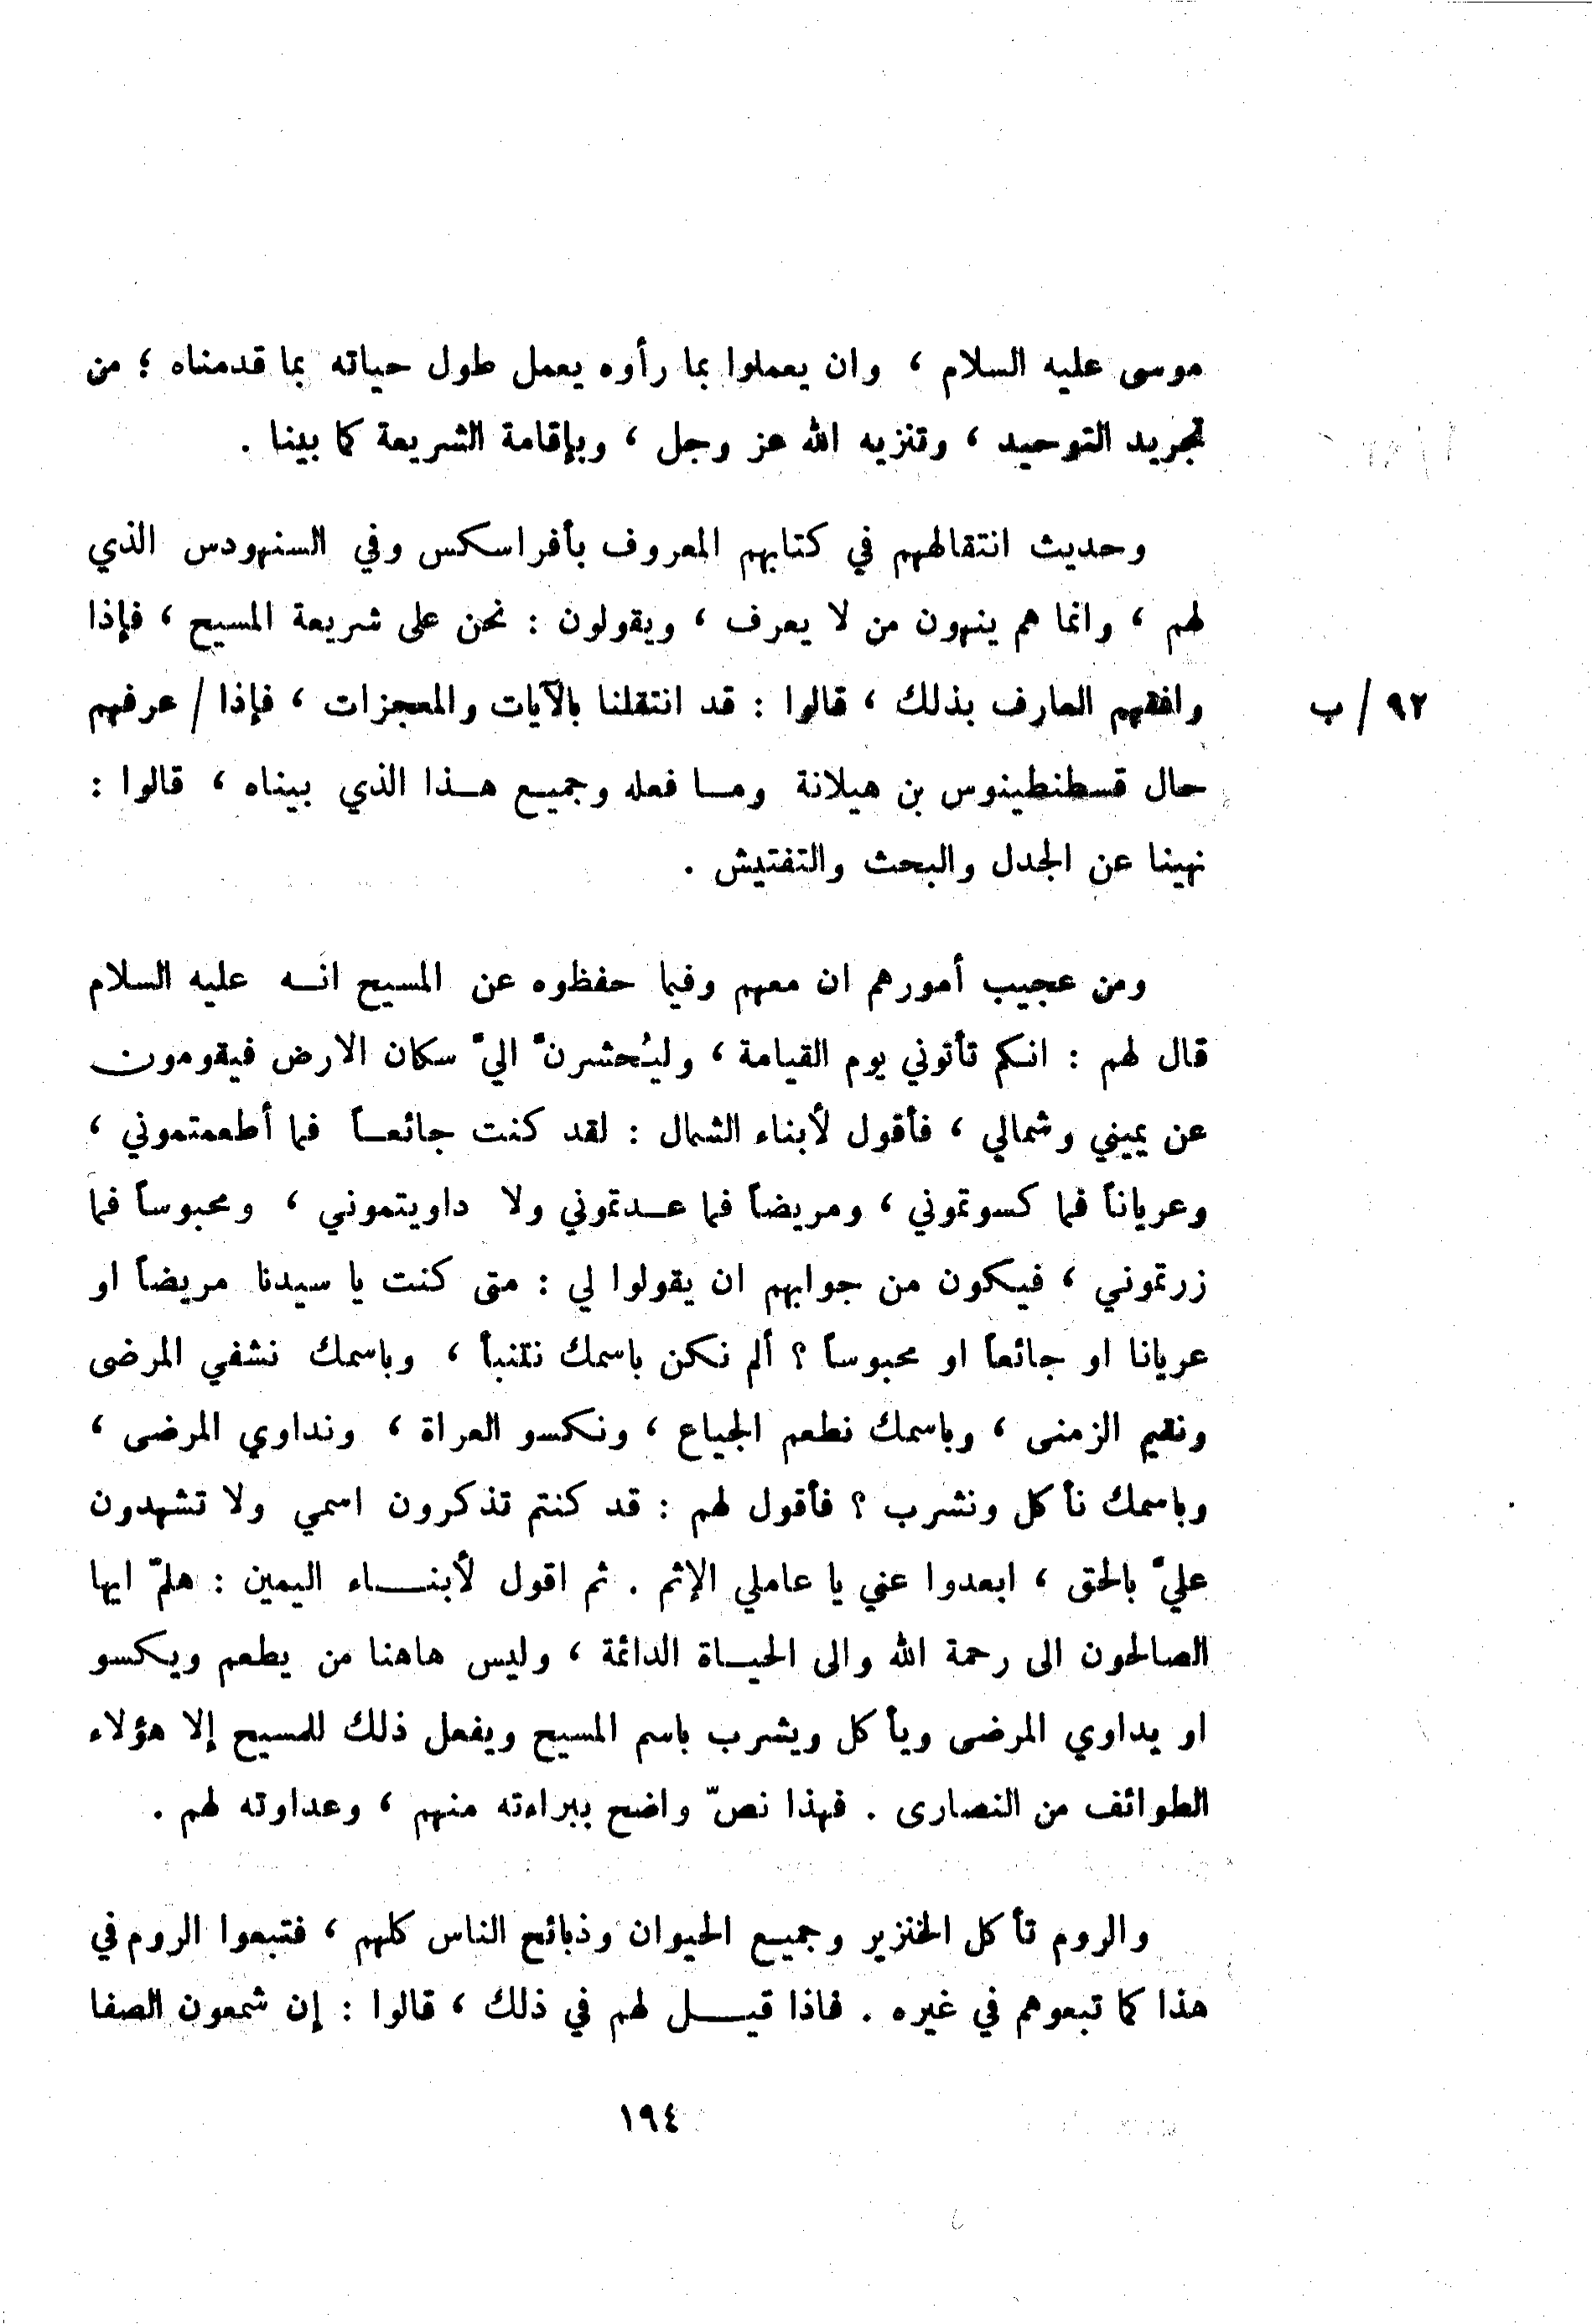 موسى عليه السلام ، وان يعملوا بما رأوه يعمل طول حياته بما قدمناه ؛ من
تجريد التوحيد ، وتنزيه الله عز وجل ، وبإقامة الشريعة كما بينا .
وحديث انتقالهم في كتابهم المعروف بأفراسكس وفي السنهودس الذي
لهم ، وانما هم ينهون من لا يعرف ، ويقولون : نحن على شريعة المسيح ، فإذا
وافقهم العارف بذلك ، قالوا : قد انتقلنا بالآيات والمعجزات ، فإذا / عرفهم
٩٢ / ب
حال قسطنطينوس بن هيلانة وما فعله وجميع هذا الذي بيناه ، قالوا :
نهينا عن الجدل والبحث والتفتيش .
ومن عجيب أمورهم ان معهم وفيما حفظوه عن المسيح انه عليه السلام
قال لهم : انكم تأتوني يوم القيامة ، وليُحشرنّ اليّ سكان الارض فيقومون
عن يميني وشمالي ، فأقول لأبناء الشمال : لقد كنت جائعاً فما أطعمتموني ،
وعرياناً فما كسوتموني ، ومريضاً فما عدتموني ولا داويتموني ، ومحبوساً فما
زرتموني ، فيكون من جوابهم ان يقولوا لي : متى كنت يا سيدنا مريضاً او
عريانا او جائعاً او محبوساً ؟ ألم نكن باسمك نتنبأ ، وباسمك نشفي المرضى
ونقيم الزمنى ، وباسمك نطعم الجياع ، ونكسو العراة ، ونداوي المرضى ،
وباسمك نأكل ونشرب ؟ فأقول لهم : قد كنتم تذكرون اسمي ولا تشهدون
عليّ بالحق ، ابعدوا عني يا عاملي الإثم . ثم اقول لأبناء اليمين : هلمّ ايها
الصالحون الى رحمة الله والى الحياة الدائمة ، وليس هاهنا من يطعم ويكسو
او يداوي المرضى ويأكل ويشرب باسم المسيح ويفعل ذلك للمسيح إلا هؤلاء
الطوائف من النصارى . فهذا نصّ واضح ببراءته منهم ، وعداوته لهم .
والروم تأكل الخنزير وجميع الحيوان وذبائح الناس كلهم ، فتبعوا الروم في
هذا كما تبعوهم في غيره . فاذا قيل لهم في ذلك ، قالوا : إن شمعون الصفا
١٩٤